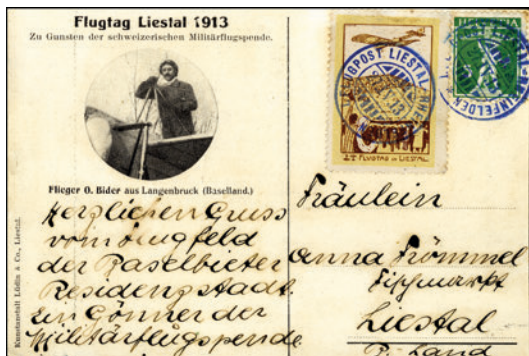 Flugtag Liestal 1913
Zu Gunsten der schweizerischen Militärflugspende.
Flieger O. Bider aus Langenbruck (Baselland.)
Kunstanstalt Lüdin & Co., Liestal.
Herzlichen Gruss
vom Flugfeld
der Baselbieter
Residenzstadt.
Ein Gönner der
Militärflugspende
FLUGPOST LIESTAL-RHEINFELDEN
FLUGTAG IN LIESTAL
HELVETIA
Fräulein
Anna Frömmel
Fischmarkt
Liestal
B. Land